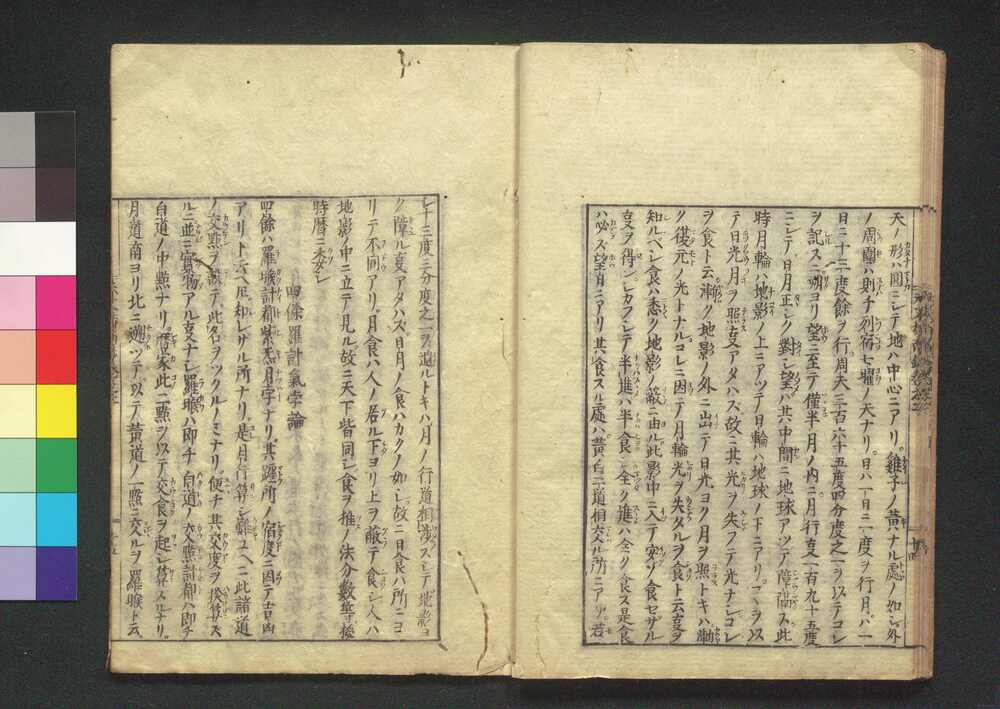 天ノ形ハ圓ニシテ地ハ中心ニアリ。雞子ノ黄ナル處ノ如シ外
ノ周圍ハ則チ列宿七曜ノ天ナリ。日ハ一日ニ一度ヲ行月ハ一
日ニ十三度餘ヲ行周天三百六十五度四分度之一ヲ以テコレ
ヲ記スニ朔ヨリ望ニ至テ僅半月ノ内ニ月行㕝一百九十五度
ニシテノ日月正シク對シ望ハ其中間ニ地球アツテ障隔ス此
時月輪ハ地影ノ上ニアツテ日輪ハ地球ノ下ニアリ。コヽヲ以
テ日光月ヲ照㕝アタハズ故ニ其光ヲ失フテ光ナシコレ
ヲ食ト云漸ク地影ノ外ニ出テ日光ヨク月ヲ照トキハ漸
ク復元ノ光トナルコレニ因テ月輪光ヲ失タルヲ食ト云㕝ヲ
知ルベシ食ハ悉ク地影ノ蔽ニ由ル此影中ニ入テ安ゾ食セザル
㕝ヲ得ンシカフシテ半進ハ半食シ全ク進ハ全ク食ス是食
ハ必ズ望月ニアリ其食スル處ハ黄白二道相交ル所ニアリ。若
シ十三度三分度之一ヲ過ルトキハ月ノ行道相渉ズシテ地影ヨ
ク障ル㕝アタハズ。日月ノ食ハカクノ如シ故ニ日食ハ所ニヨ
リテ不同アリ。月食ハ人ノ居ル下ヨリ上ヲ蔽テ食シ人ハ
地影ノ中ニ立テ見ル故ニ天下皆同シ食ヲ推ノ法分數等後
時暦ニ委シ
四餘羅計氣孛論
四餘ハ羅㬋計都紫炁月孛ナリ。其躔所ノ宿度ニ因テ吉凶
アリト云ヘ𪜈却シザル所ナリ。是月行算シ難ユヘニ此諸道
ノ交點ヲ設テ此名ヲツクルノミナリ。便チ其交度ヲ後算ス
ルニ並ニ實物アル㕝ナシ羅㬋ハ即チ白道ノ交點計都ハ即チ
白道ノ中點ナリ。暦家此二點ヲ以テ交食ヲ起シ算スルナリ。
月道南ヨリ北ニ遡ツテ以テ黄道ノ一點ニ交ルヲ羅㬋ト云